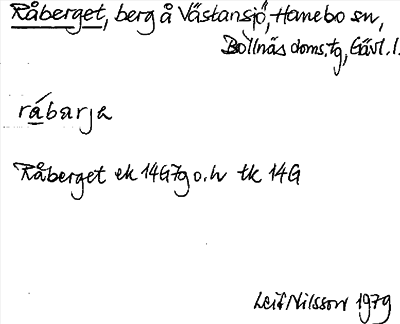 Råberget, berg å Västansjö, Hanebo sn,
Bollnäs doms.tg, Gävl. l.
rábarja
Råberget ek 14G7g o.h tk 14G
Leif Nilsson 1979